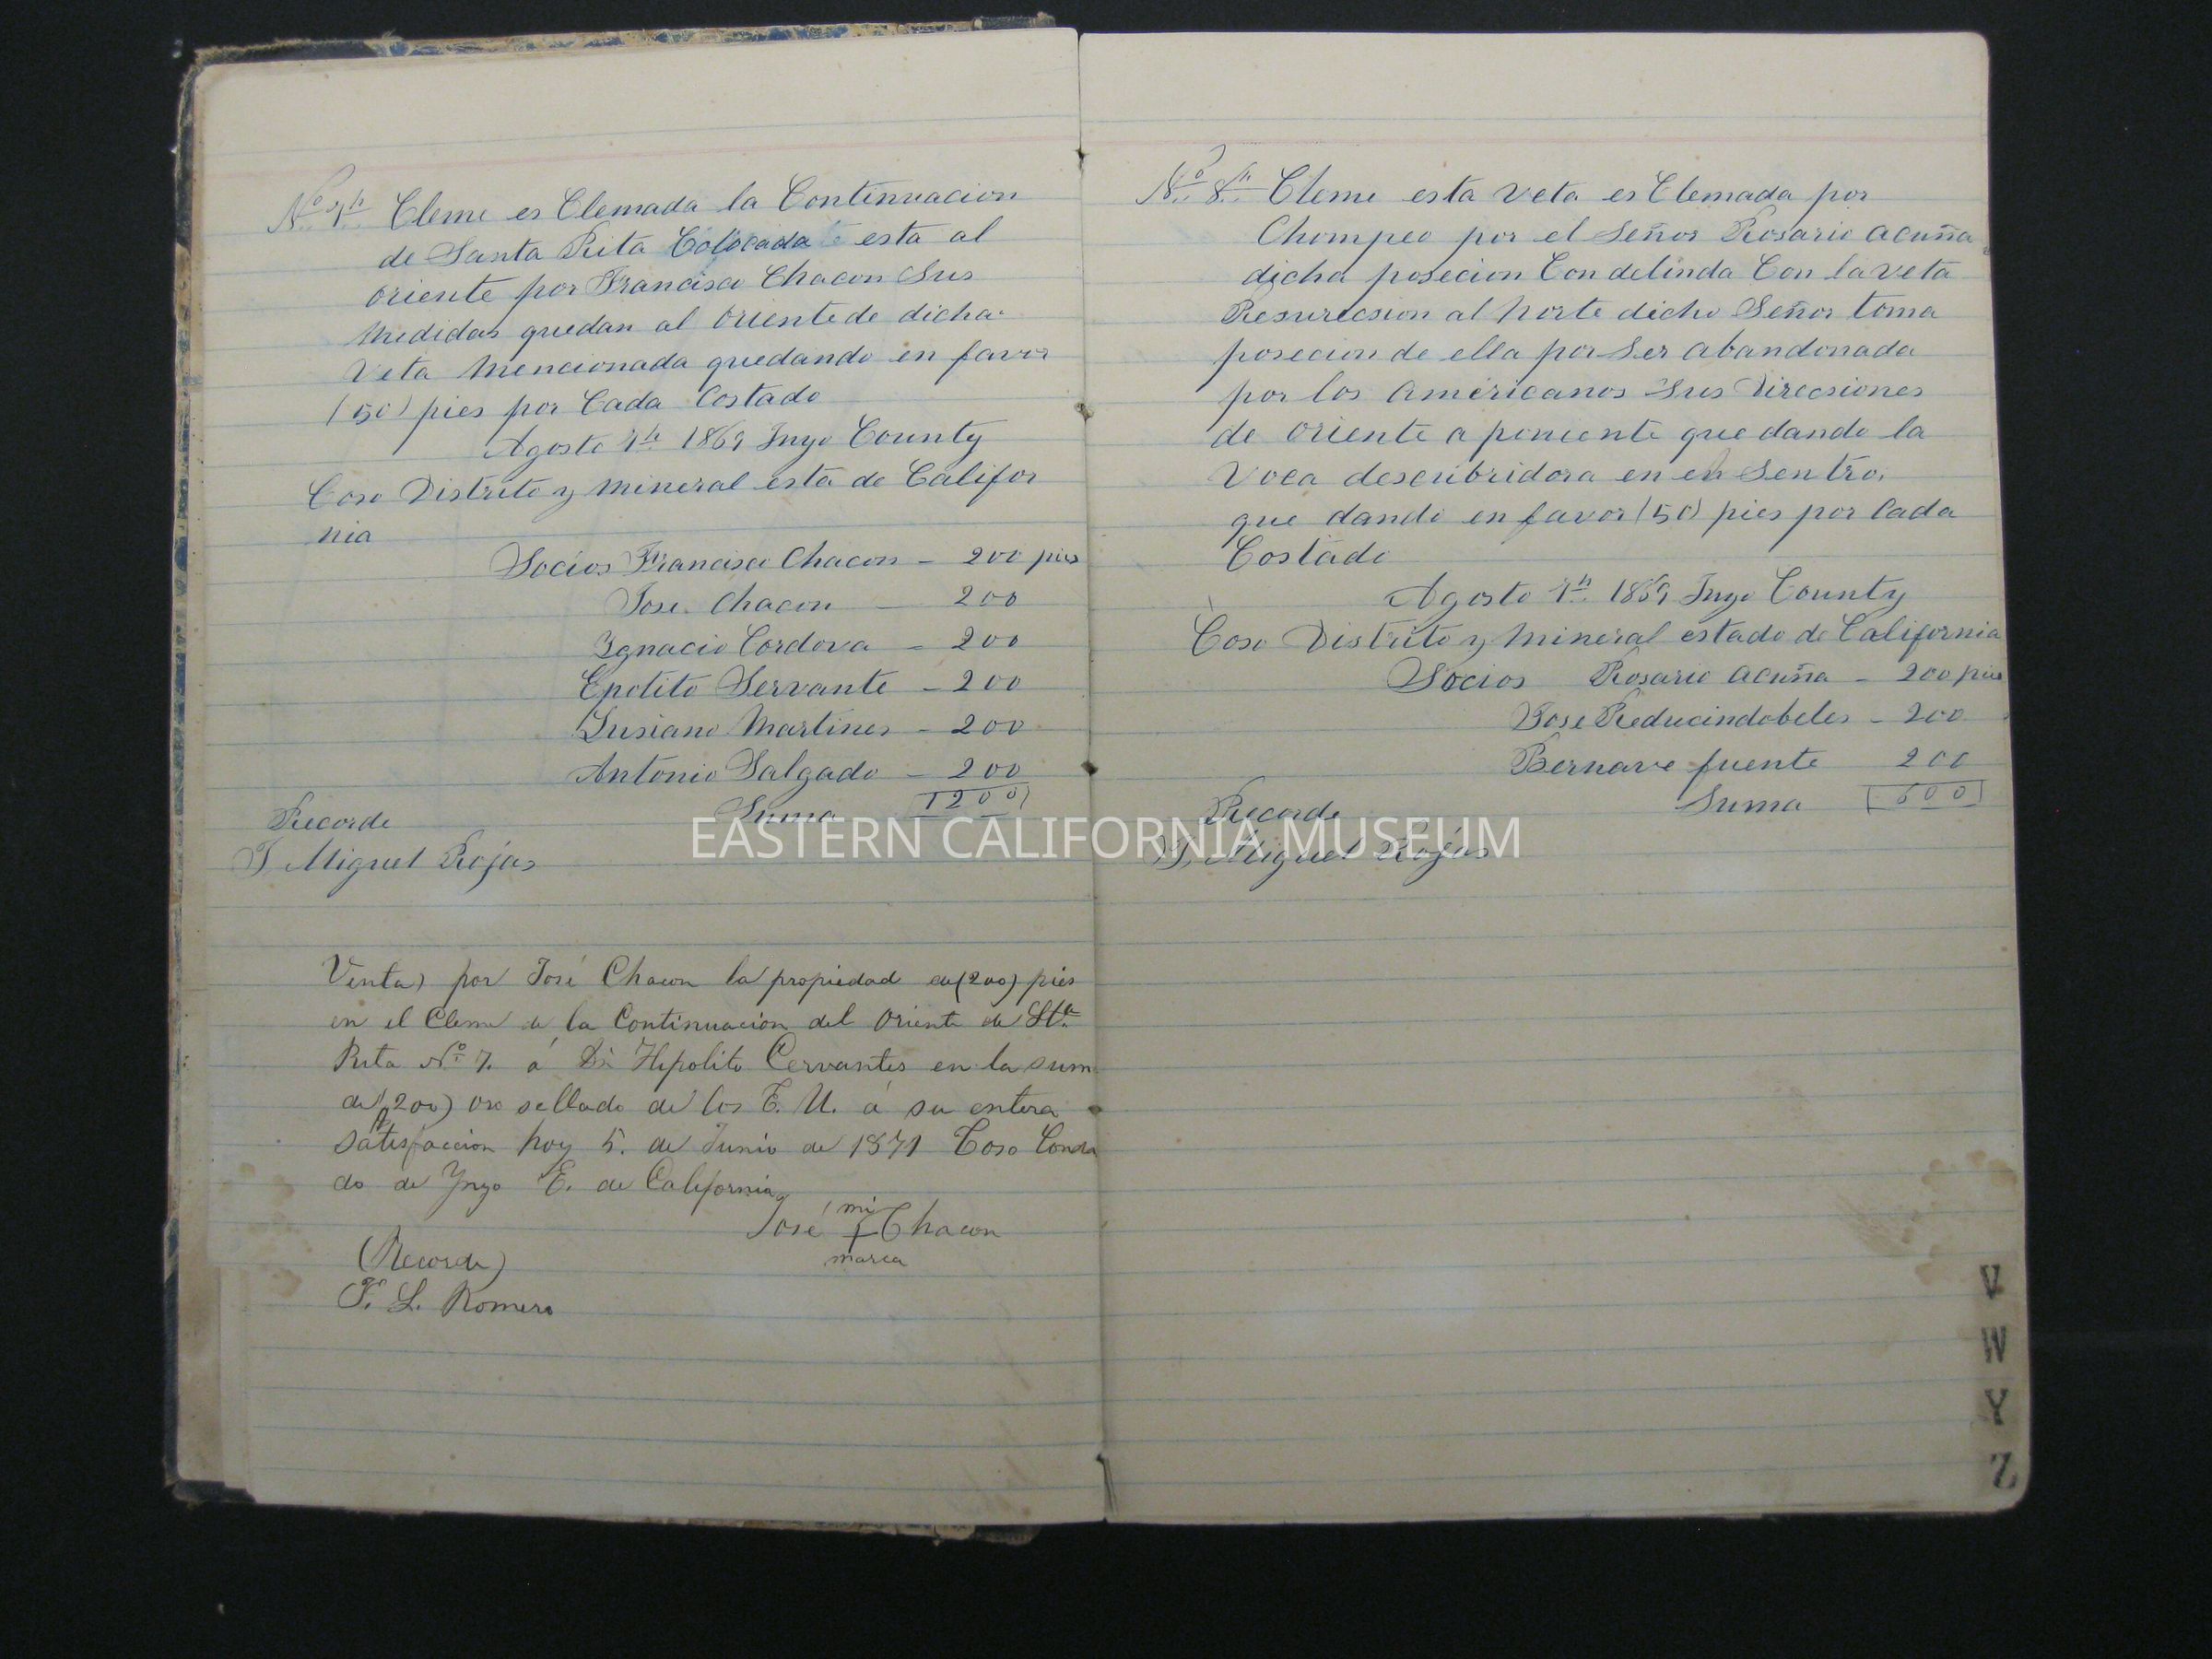 No. 7th Cleme es Clemada la Continuacion
de Santa Rita Colocada esta al
oriente por Francisco Chacon Sus
medidas quedan al oriente de dicha
Veta mencionada quedando en favor
(50) pies por Cada Costado
Agosto 7th 1869 Inyo County
Coso Distrito y mineral esta de Califor
nia
Socios Francisco Chacon - 200 pies
Jose Chacon - 200
Ignacio Cordova - 200
Epolito Servante - 200
Lusiano Martines - 200
Antonio Salgado - 200
Suma 1200
Recorde
T, Miguel Rojas
Venta por José Chacon la propiedad de (200) pies
en el Cleme de la Continuacion del Oriente de Sta
Rita No 7. á Dn Hipolito Cervantes en la sum
de ($200) oro sellado de los E. U. á su entera
satisfaccion hoy 5. de Junio de 1871 Coso Conda
do de Ynyo E. de California
José mi + Chacon
marca
(Recorde)
F. L. Romero
No. 8th Cleme esta veta es Clemada por
Chompeo por el Señor Rosario acuña
dicha posecion Con delinda Con la veta
Resurecsion al norte dicho Señor toma
posecion de ella por Ser abandonada
por los americanos Sus Direcsiones
de oriente a poniente que dando la
Voca descubridora en en Sentro,
que dando en favor (50) pies por Cada
Costado
Agosto 7th 1869 Inyo County
Coso Distrito y mineral estado de California
Socios Rosario acuña - 200 pies
Jose Reducindobeles - 200
Bernave fuente 200
Suma 600
Recorde
T, Miguel Rojas
EASTERN CALIFORNIA MUSEUM
V
W
Y
Z